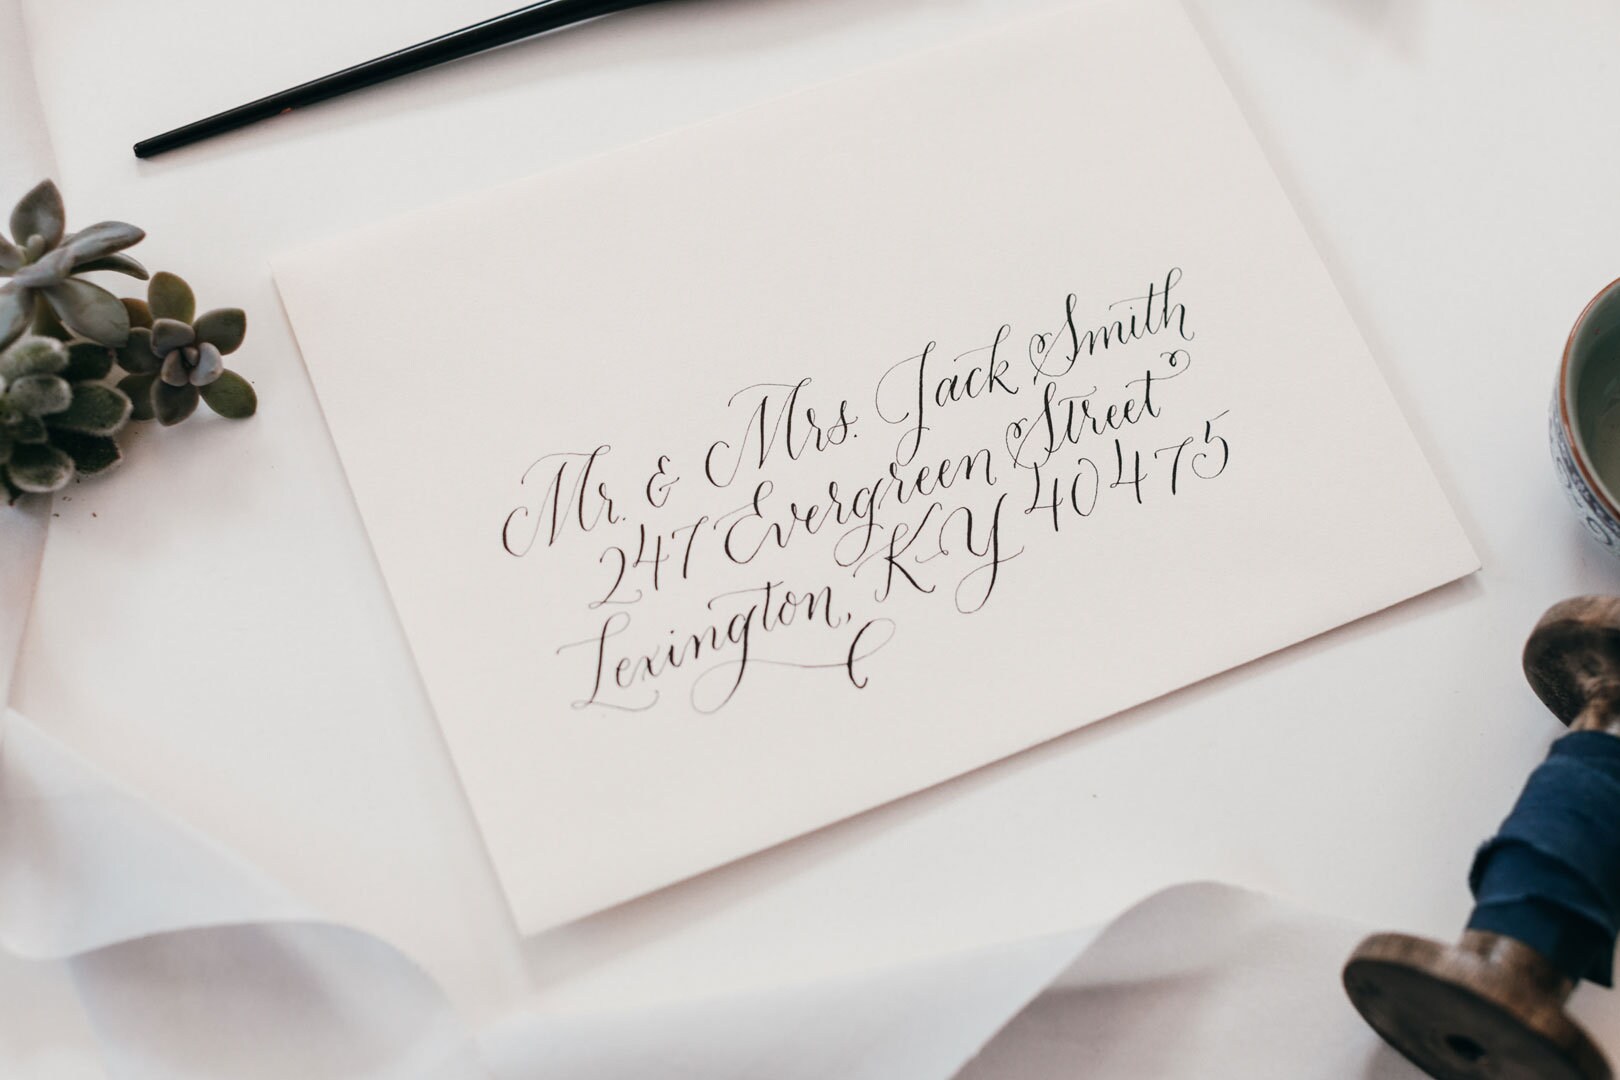 Mr. & Mrs. Jack Smith
247 Evergreen Street
Lexington, KY 40475